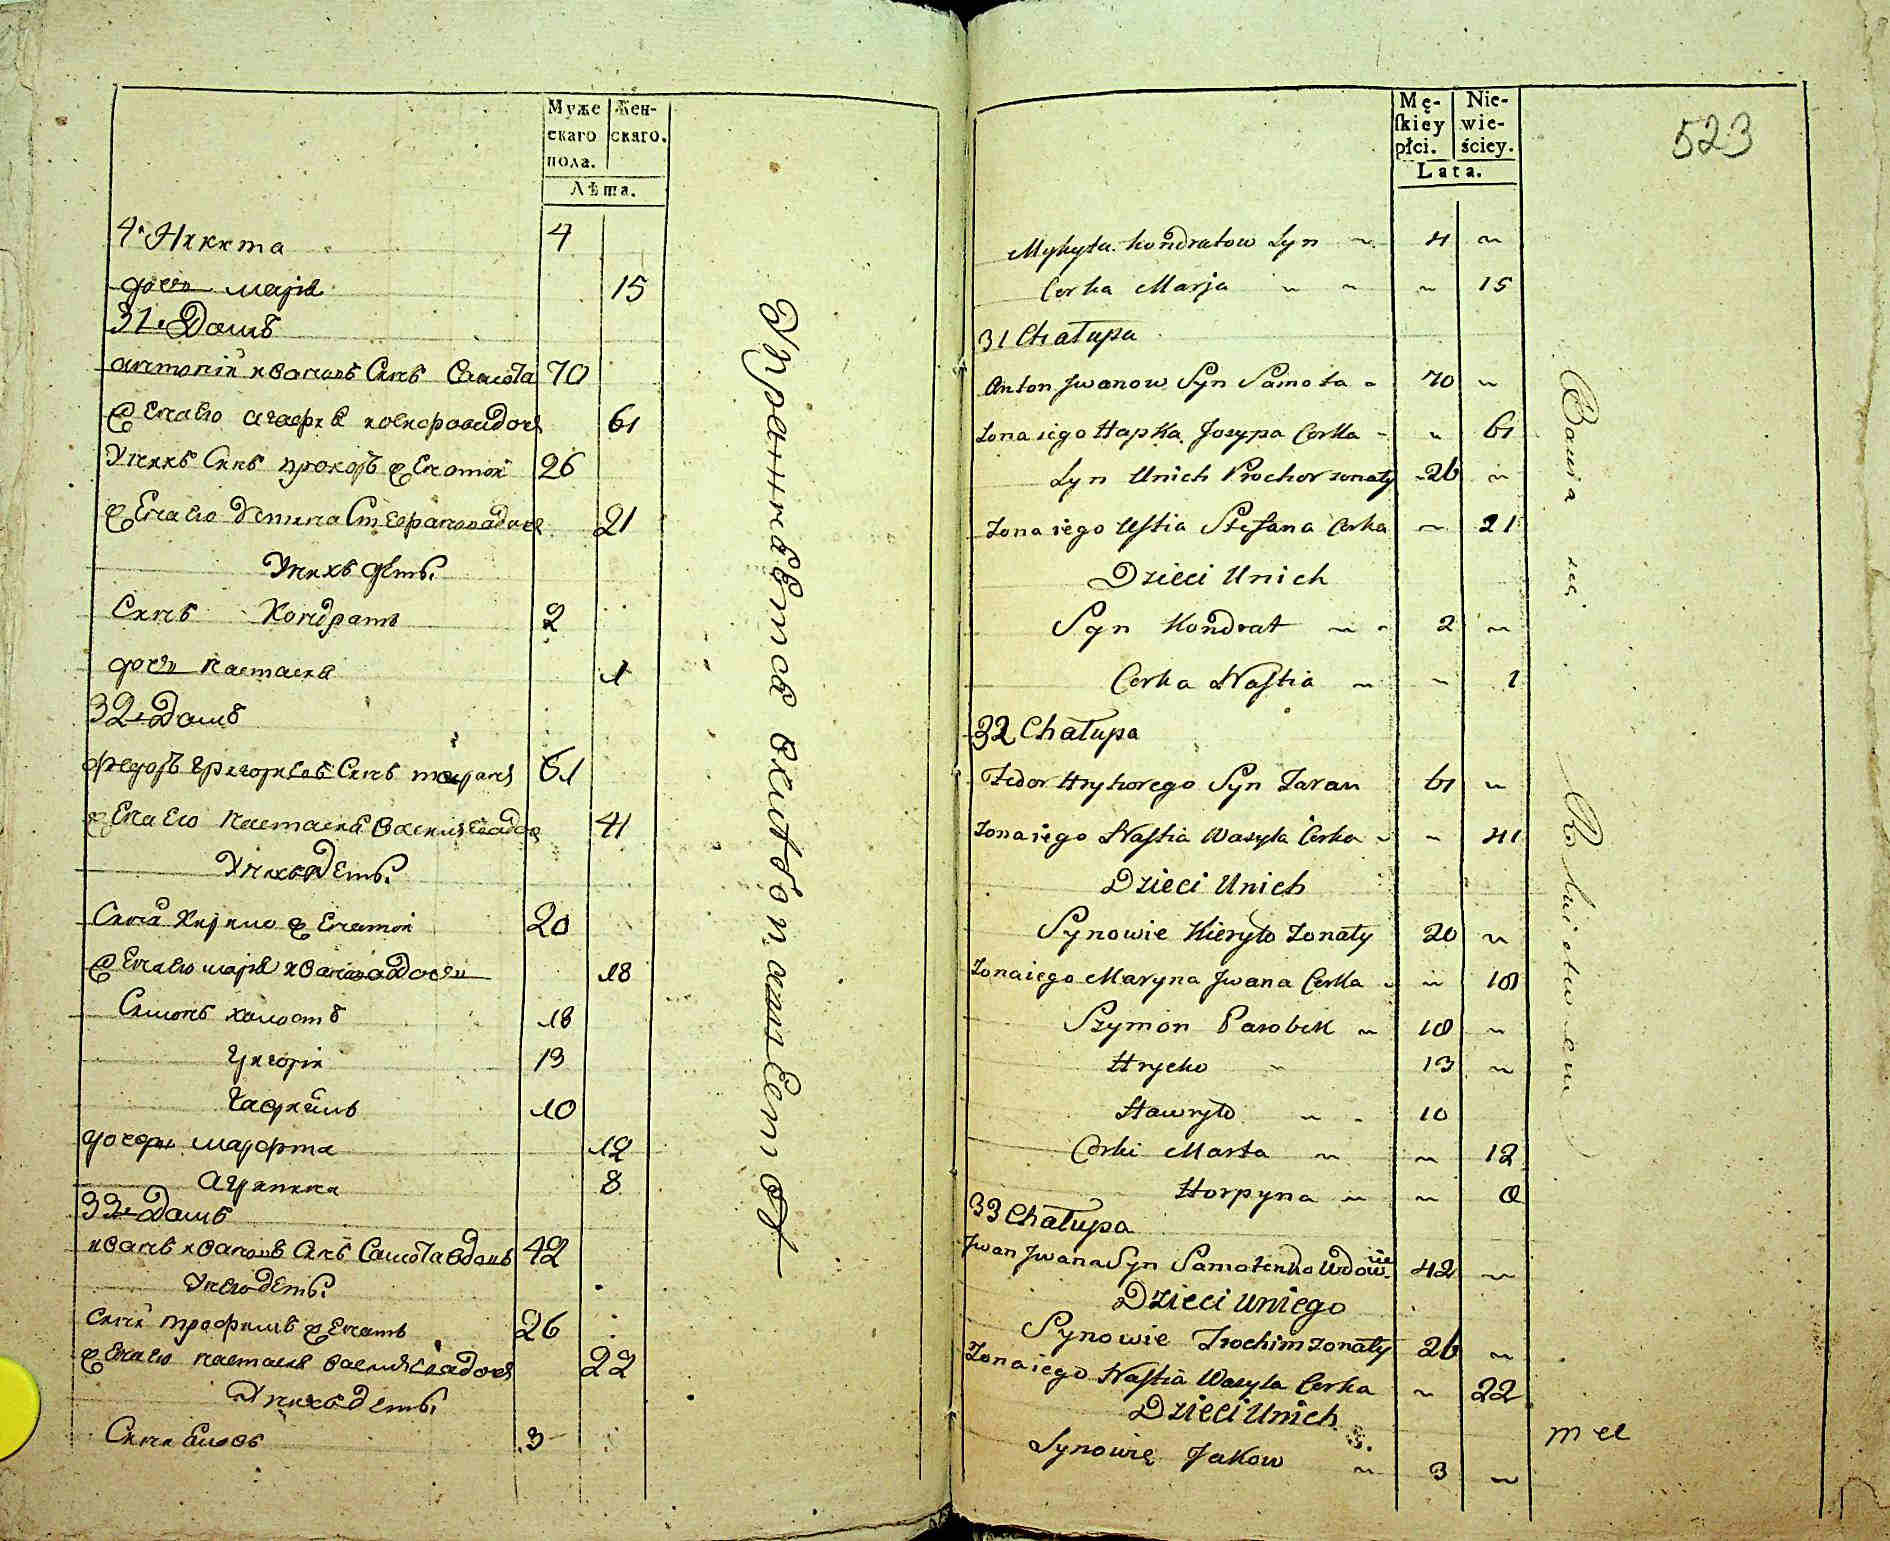 Муже Жен-
скаго скаго.
пола.
Лѣта.
4. Никита 4
дочь марія 15
31. Домъ
антоній ивановъ Синъ Самота 70
Жена его агафія 61
Унихъ Синъ прохоръ Женатой 26
Жена его 21
Унихъ дѣть:
Синъ Кондратъ 2
дочь настасія 1
32. Домъ
федоръ григоріевъ Синъ таранъ 61
Жена его настасія 41
Унихъ дѣть:
Сины Кирило Женатой 20
Жена его марія иванова дочь 18
Симонъ холостъ 18
григорій 13
гаврило 10
дочери марфта 12
агрипина 8
33. Домъ
иванъ ивановъ Синъ Самота вдовъ 42
У него дѣть:
Сини трофимъ Женатъ 26
Жена его настасія 22
Унихъ дѣть:
Сини 3
Упражняется
Mę- Nie-
ſkiey wie-
płci. ściey.
Lata.
523
Mykyta Kondratow Syn 4
Corka Marja 15
31 Chałupa
Anton Jwanow Syn Samota 70
Zona iego Hapka Josypa Corka 61
Syn Unich Prochor zonaty 26
Zona iego Uſtia Stefana Corka 21
Dzieci Unich
Syn Kondrat 2
Corka Naſtia 1
32 Chałupa
Fedor Hryhorego Syn Taran 61
Zona iego Naſtia Wasyla Corka 41
Dzieci Unich
Synowie Kieryło Zonaty 20
Zona iego Maryna Jwana Corka 18
Szymon Parobek 18
Hrycko 13
Hawryło 10
Corki Marta 12
Horpyna 8
33 Chałupa
Jwan Jwana Syn Samotenko Wdowiec 42
Dzieci Uniego
Synowie Trochim zonaty 26
Zona iego Naſtia Wasyla Corka 22
Dzieci Unich
Synowie Jakow 3
Bawią się Rolnictwem